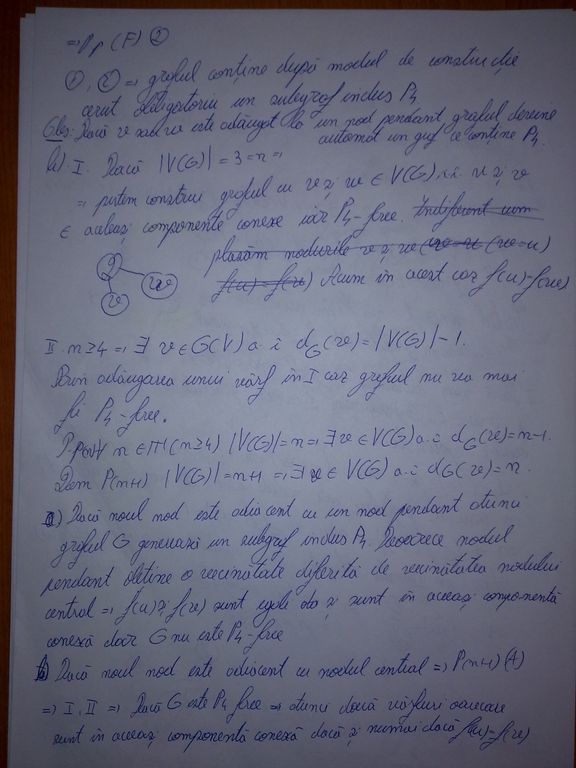 => Pp(F) ②
①, ② => graful conține după modul de construcție
cerut obligatoriu un subgraf indus P4
Obs: Dacă v sau va este adăugat la un nod pendant graful devine
automat un graf ce conține P4.
b) I. Dacă |V(G)| = 3 = n =>
=> putem construi graful cu v și w ∈ V(G) a.î. u și v
∈ aceleași componente conexe iar P4-free. Indiferent cum
plasăm nodurile v și w (w=u (w=u)
f(u) = f(v)) Acum în acest caz f(u)=f(v)
2
v w
II. n≥4 => ∃ v ∈ G(V) a. î dG(v) = |V(G)| - 1.
Prin adăugarea unui vârf în I caz graful nu va mai
fi P4-free.
P.p(n) n ∈ (n≥4) |V(G)| = n => ∃ v ∈ V(G) a.î dG(v) = n-1.
Dem P(n+1) |V(G)| = n+1 => ∃ v ∈ V(G) a.î dG(v) = n.
a) Dacă noul nod este adiacent cu un nod pendant atunci
graful G generează un subgraf indus P4. Deoarece nodul
pendant obține o vecinătate diferită de vecinătatea nodului
central => f(u) și f(v) sunt egale da și sunt în aceeași componentă
conexă dar G nu este P4-free
b) Dacă noul nod este adiacent cu nodul central => P(n+1) (A)
=> I, II => Dacă G este P4 free => atunci două vârfuri oarecare
sunt în aceeași componentă conexă dacă și numai dacă f(u)=f(v)